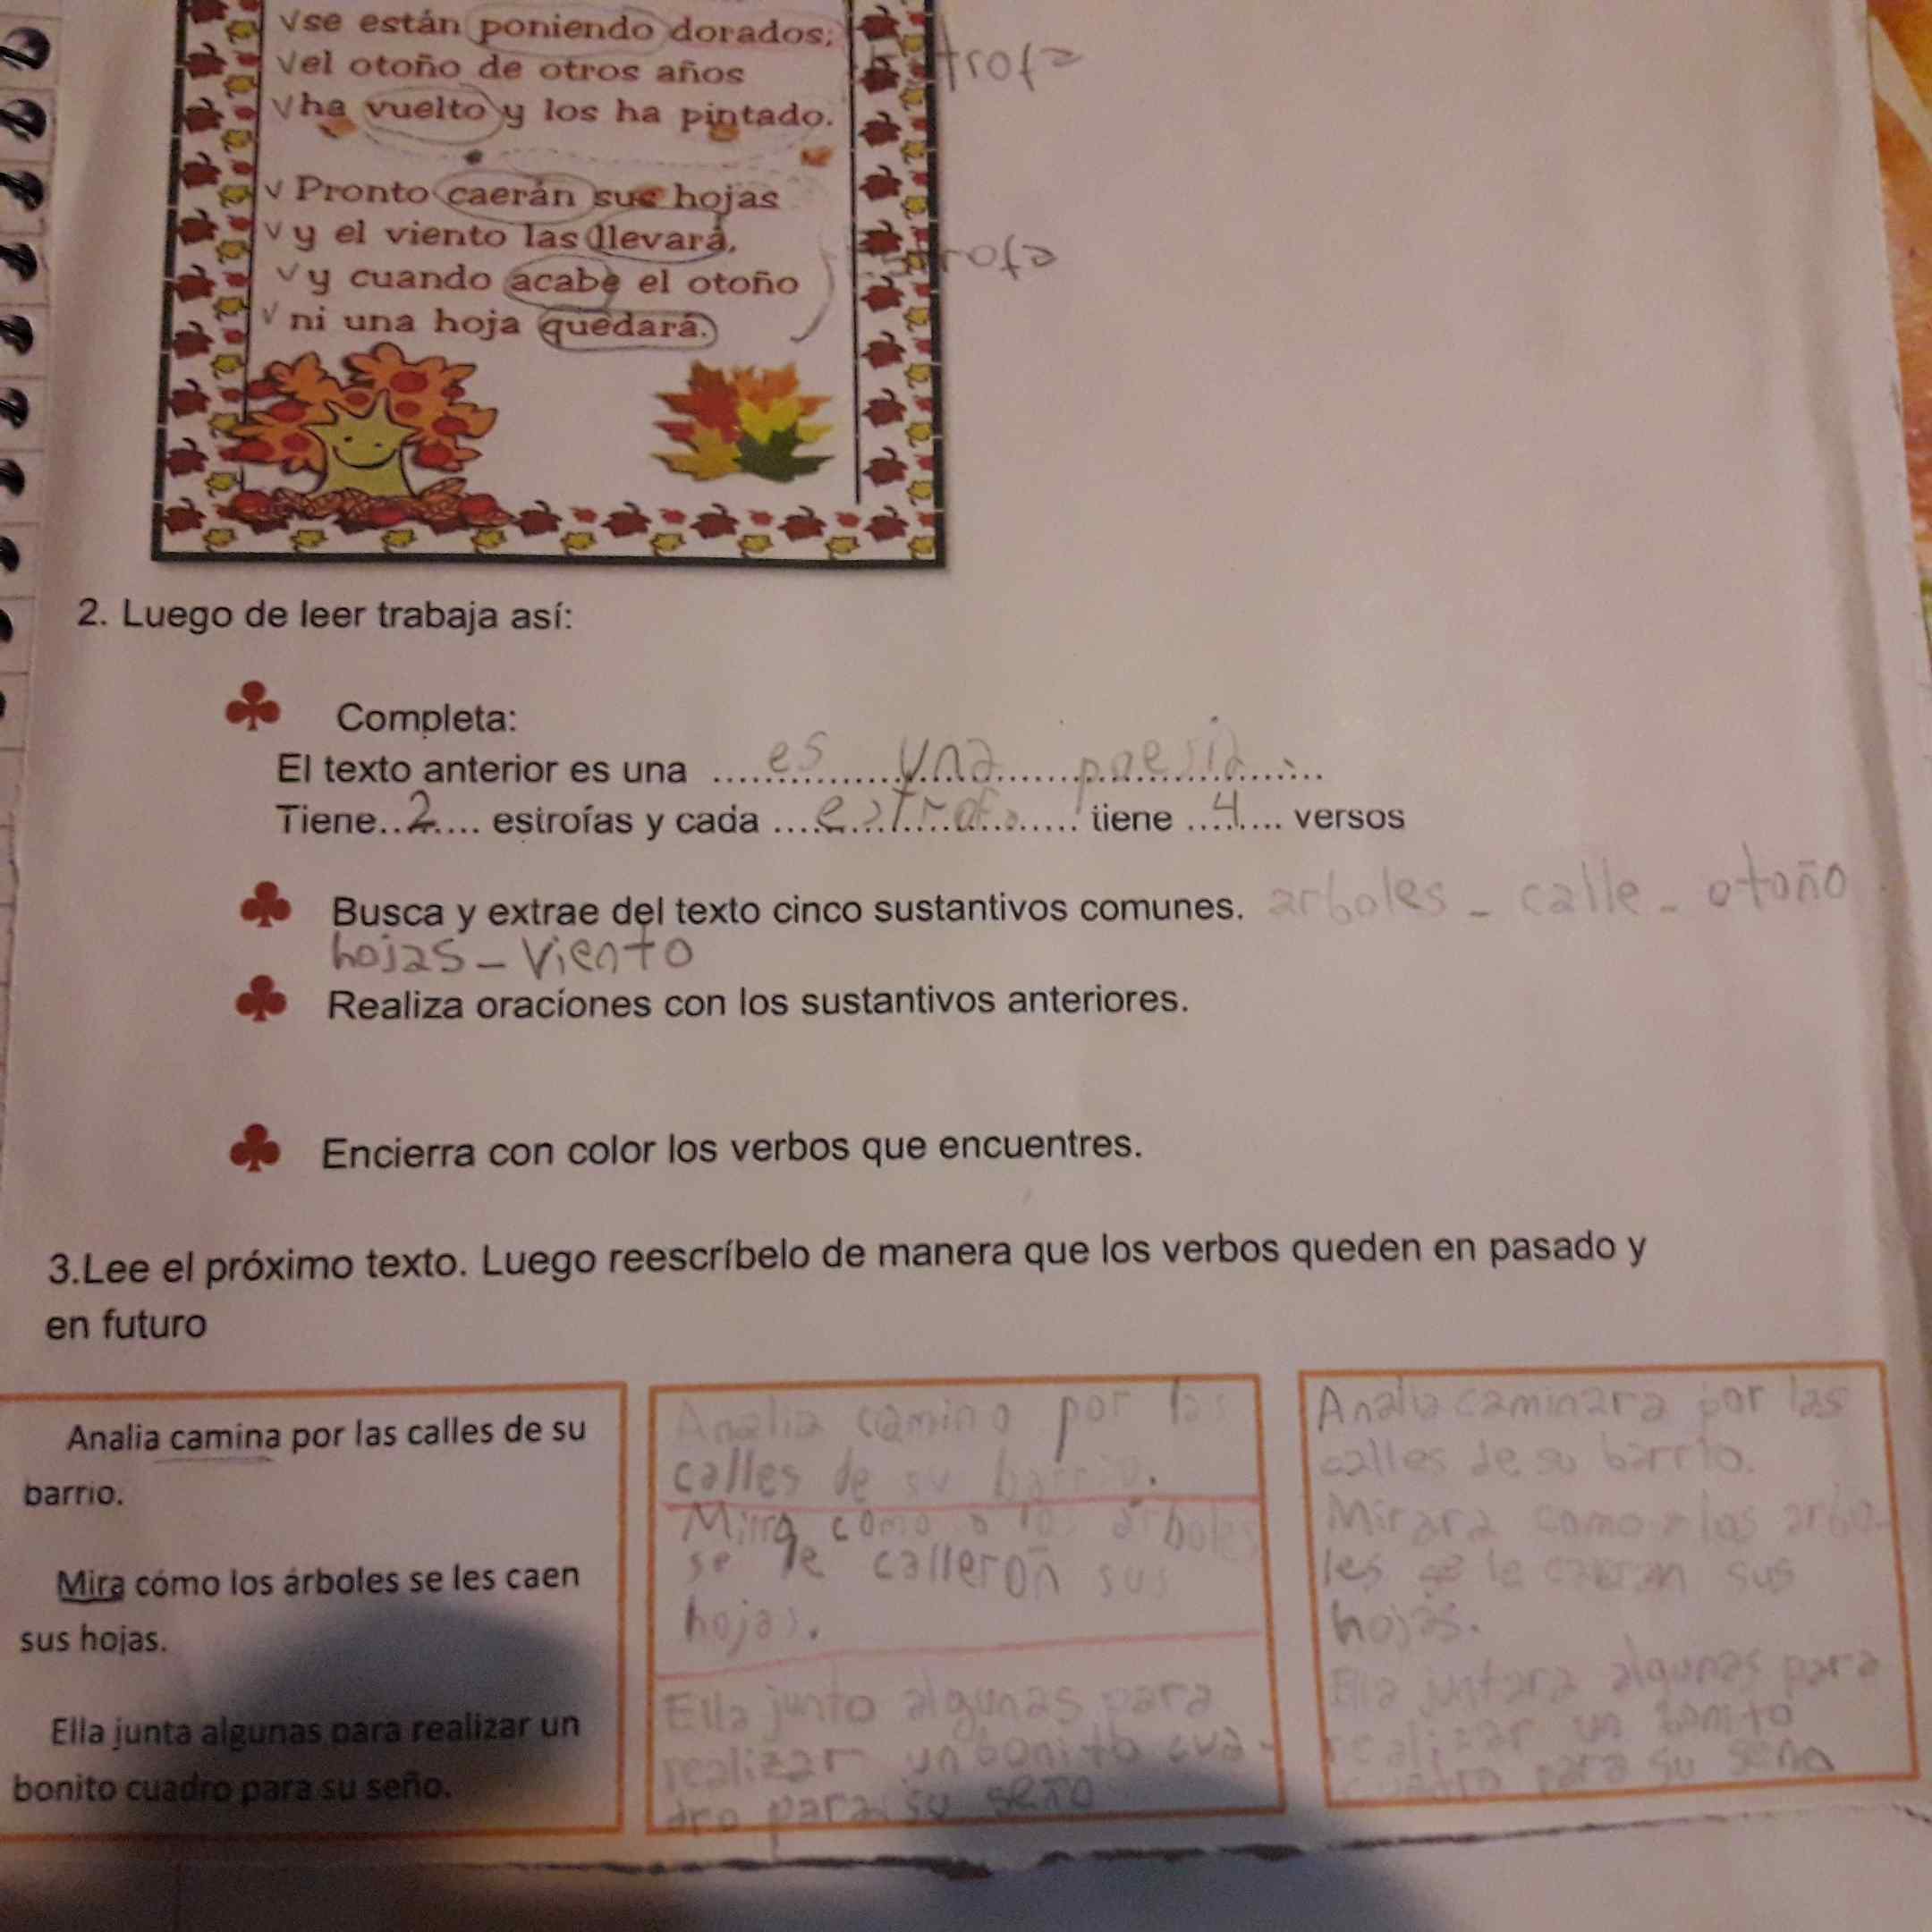 √se están poniendo dorados;
√el otoño de otros años
√ha vuelto y los ha pintado.
trofa
√ Pronto caerán sus hojas
√ y el viento las llevará,
√ y cuando acabe el otoño
√ ni una hoja quedará.
rofa
2. Luego de leer trabaja así:
♣ Completa:
El texto anterior es una ...es una poesia...
Tiene...2.... estrofas y cada ....estrofa.... tiene ...4... versos
♣ Busca y extrae del texto cinco sustantivos comunes. arboles - calle - otoño
hojas - viento
♣ Realiza oraciones con los sustantivos anteriores.
♣ Encierra con color los verbos que encuentres.
3.Lee el próximo texto. Luego reescríbelo de manera que los verbos queden en pasado y
en futuro
Analia camina por las calles de su
barrio.
Mira cómo los árboles se les caen
sus hojas.
Ella junta algunas para realizar un
bonito cuadro para su seño.
Analia camino por las
calles de su barrio.
como a los arboles
se le calleron sus
hojas.
Ella junto algunas para
realizar un bonito cua-
dro para su seño
Analia caminara por las
calles de su barrio.
Mirara como a los arbo-
les se le sus
hojas.
Ella juntara algunas para
realizar un bonito
cuadro para su seño